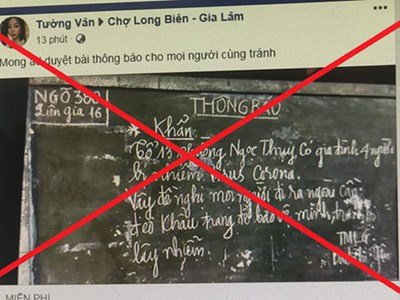 Tường Vân ▸ Chợ Long Biên - Gia Lâm
13 phút ·
Mong duyệt bài thông báo cho mọi người cùng tránh
NGÕ 38
Liên gia 16
THÔNG BÁO
* Khẩn
Tổ 13 Ngọc Thụy có gia đình 4 người
bị nhiễm virus Corona.
Vậy đề nghị mọi người đi ra ngoài cần
đeo khẩu trang để bảo vệ mình, tránh
lây nhiễm.
MIỄN PHÍ